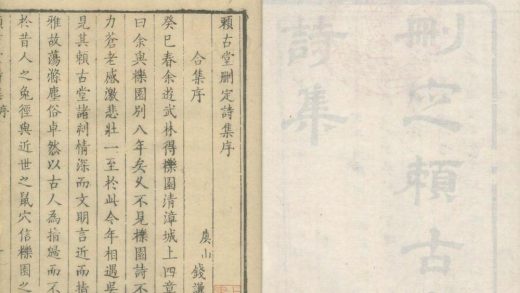 刪定頼古
詩集
頼古堂刪定詩集序
合集序
虞山 錢謙
癸巳春余遊武林得櫟園清漳城上四章
曰余與櫟園别八年矣又不見櫟園詩不
力蒼老感激悲壯一至於此今年相遇吳
見其頼古堂諸刻情深而文明言近而指
雅故蕩滌塵俗卓然以古人為指歸而不
於昔人之兔徑與近世之鼠穴信櫟園之